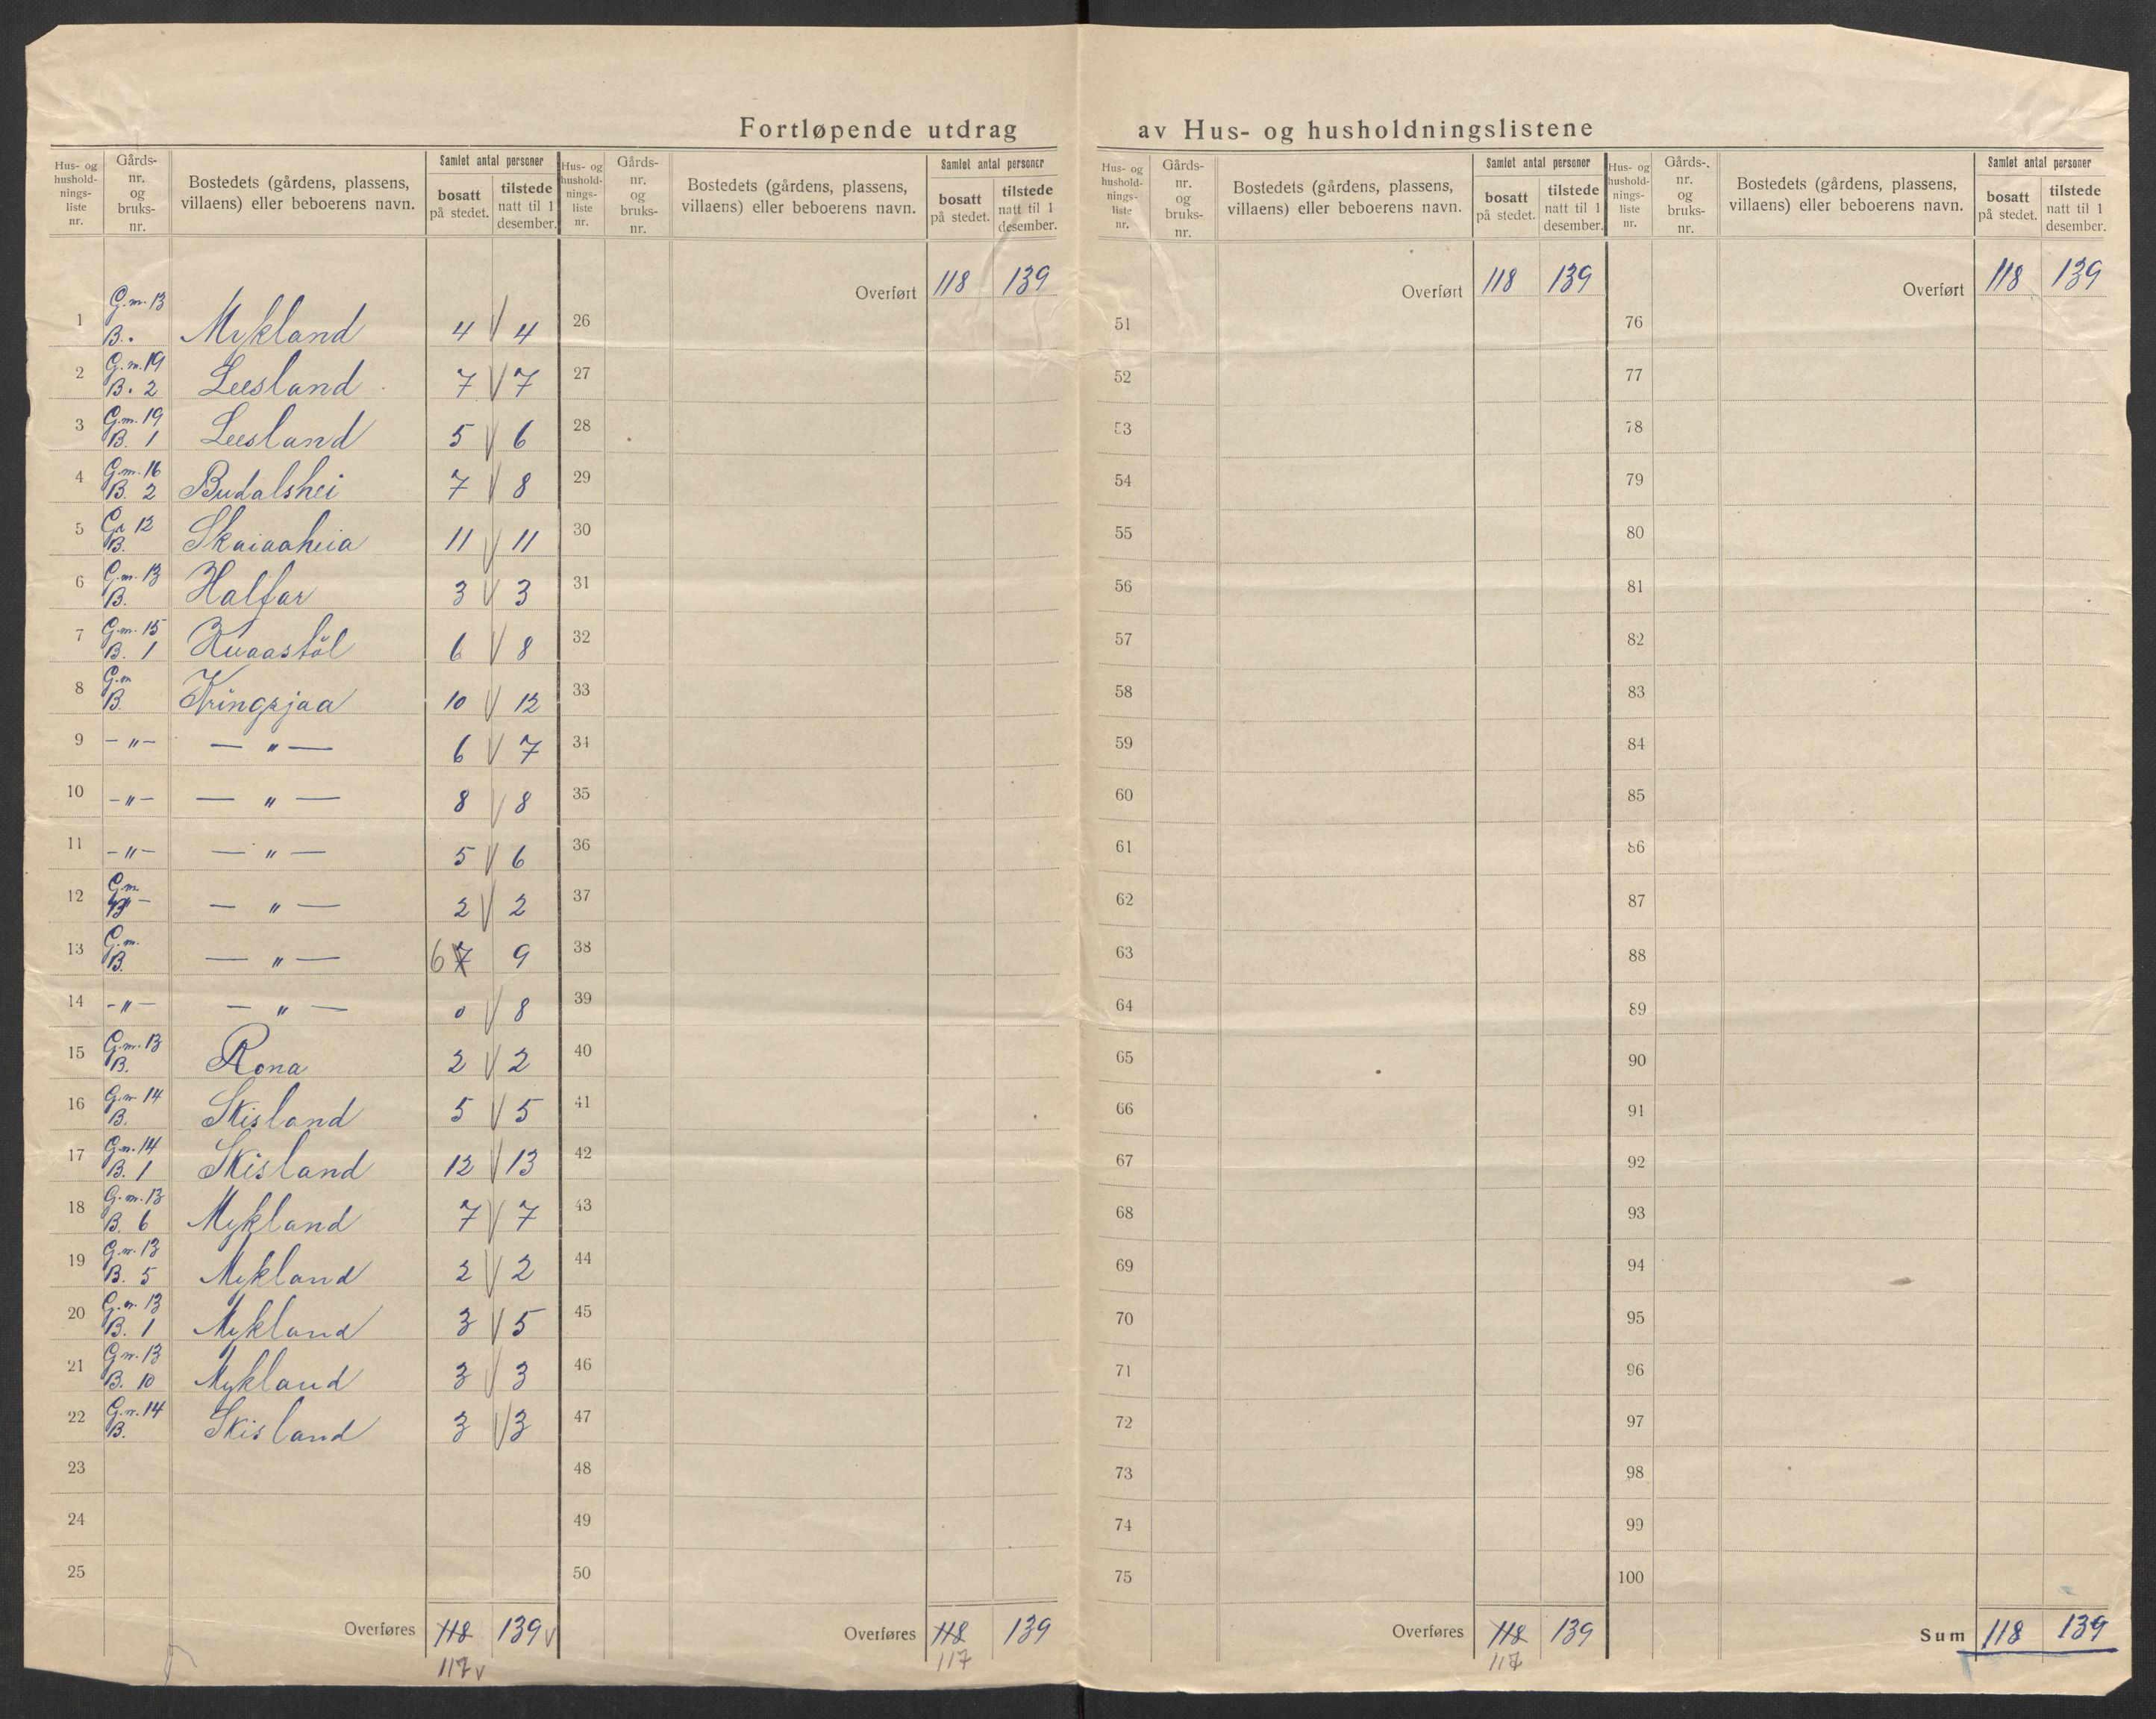 Fortløpende utdrag av Hus- og husholdningslistene
Hus- og husholdningsliste nr. Gårds-nr. og bruks-nr. Bostedets (gårdens, plassens, villaens) eller beboerens navn. Samlet antal personer bosatt på stedet. tilstede natt til 1 desember.
Hus- og husholdningsliste nr. Gårds-nr. og bruks-nr. Bostedets (gårdens, plassens, villaens) eller beboerens navn. Samlet antal personer bosatt på stedet. tilstede natt til 1 desember.
Hus- og husholdningsliste nr. Gårds-nr. og bruks-nr. Bostedets (gårdens, plassens, villaens) eller beboerens navn. Samlet antal personer bosatt på stedet. tilstede natt til 1 desember.
Hus- og husholdningsliste nr. Gårds-nr. og bruks-nr. Bostedets (gårdens, plassens, villaens) eller beboerens navn. Samlet antal personer bosatt på stedet. tilstede natt til 1 desember.
1 G.nr. 13 B. Mykland 4 4
2 G.nr. 19 B. 2 Leesland 7 7
3 G.nr. 19 B. 1 Leesland 5 6
4 G.nr. 16 B. 2 Budalshei 7 8
5 Gr 12 B. Skaiaaheia 11 11
6 G.nr. 13 B. Halfar 3 3
7 G.nr. 15 B. 1 Kvaastöl 6 8
8 G.nr B. Kringsjaa 10 12
9 -"- - " - 6 7
10 -"- - " - 8 8
11 -"- - " - 5 6
12 G.nr B - " - 2 2
13 G.nr. B. - " - 6 7 9
14 -"- - " - 0 8
15 G.nr. 13 B. Rona 2 2
16 G.nr 14 B. Skisland 5 5
17 G.nr. 14 B. 1 Skisland 12 13
18 G.nr. 13 B. 6 Mykland 7 7
19 G.nr. 13 B. 5 Mykland 2 2
20 G.nr. 13 B. 1 Mykland 3 5
21 G.nr. 13 B. 10 Mykland 3 3
22 G.nr. 14 B. Skisland 3 3
23
24
25
Overføres 118 139
117
Overført 118 139
26
27
28
29
30
31
32
33
34
35
36
37
38
39
40
41
42
43
44
45
46
47
48
49
50
Overføres 118 139
117
Overført 118 139
51
52
53
54
55
56
57
58
59
60
61
62
63
64
65
66
67
68
69
70
71
72
73
74
75
Overføres 118 139
117
Overført 118 139
76
77
78
79
80
81
82
83
84
85
86
87
88
89
90
91
92
93
94
95
96
97
98
99
100
Sum 118 139